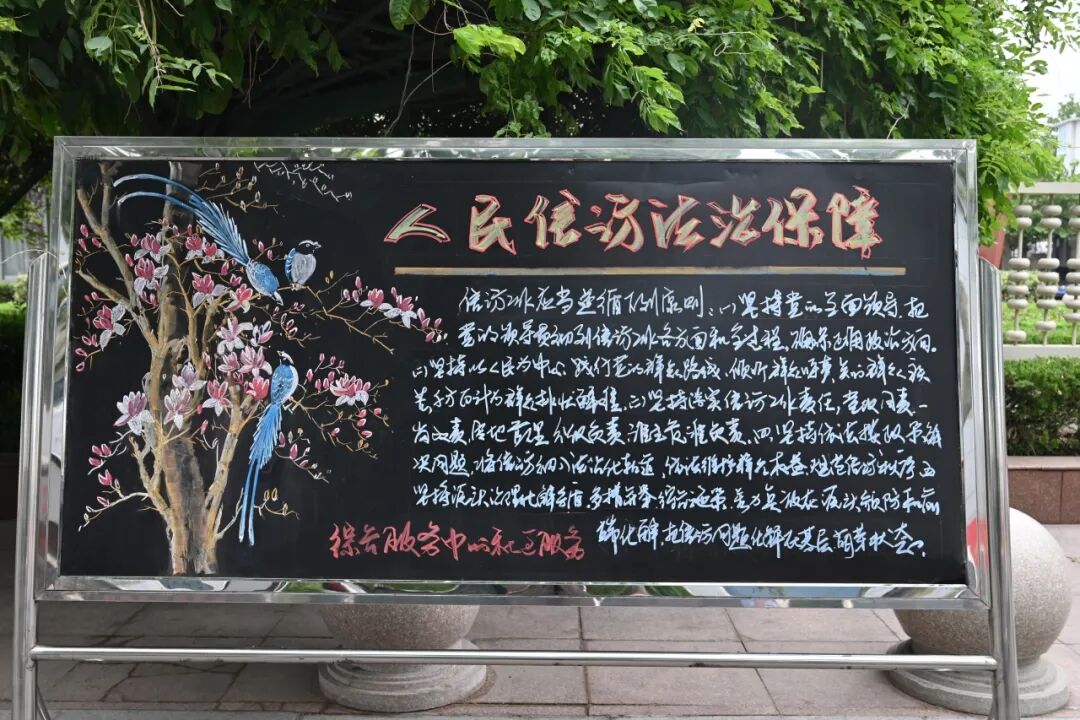 人民信访法治保障
信访工作应当遵循下列原则：(一)坚持党的全面领导，把
党的领导贯彻到信访工作各方面和全过程，确保正确政治方向。
(二)坚持以人民为中心，践行党的群众路线，倾听群众呼声，关心群众疾
苦，千方百计为群众排忧解难。(三)坚持落实信访工作责任，党政同责、一
岗双责，属地管理、分级负责，谁主管、谁负责。(四)坚持依法按政策解
决问题，将信访纳入法治化轨道，依法维护群众权益、规范信访秩序。(五)
坚持源头治理化解矛盾，多措并举、综合施策，着力点放在源头预防和前
端化解，把信访问题化解在基层、萌芽状态。
综合服务中心